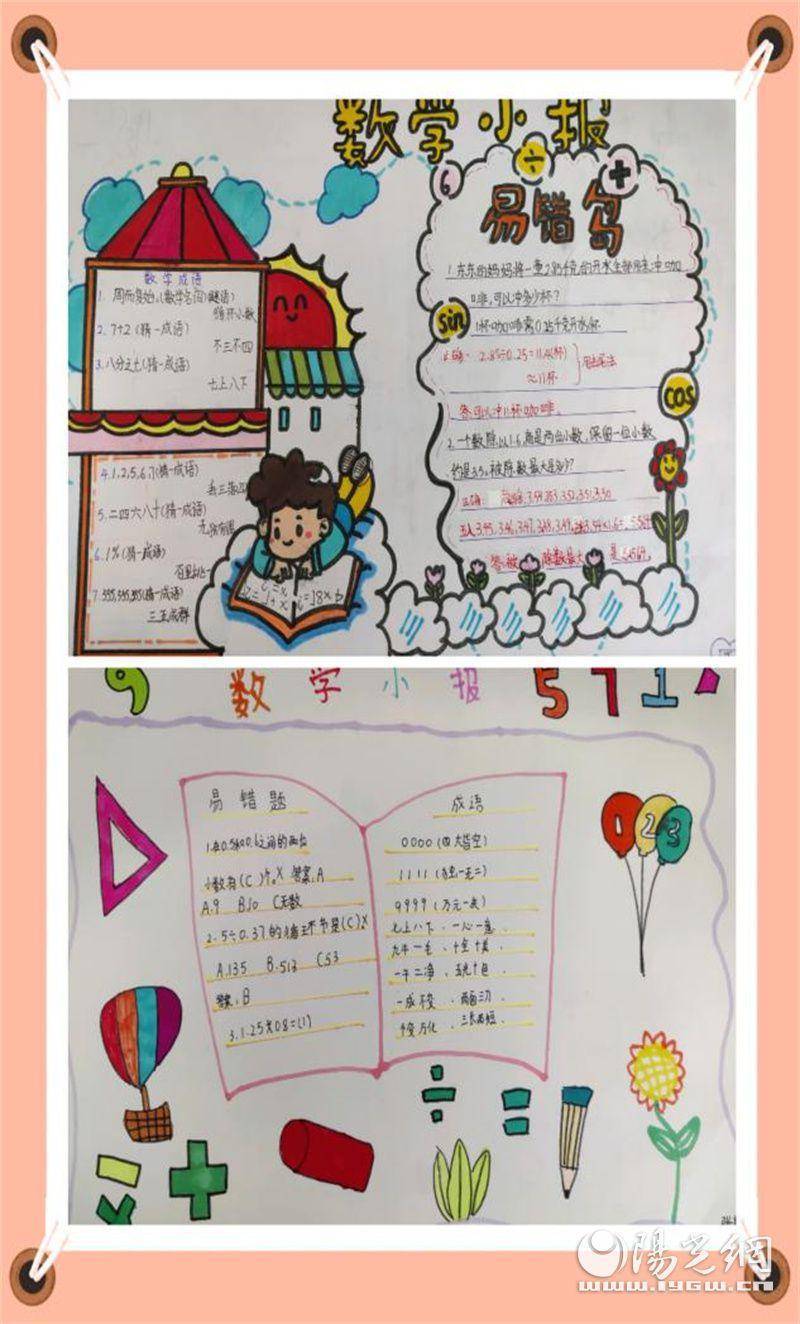 数学小报
6
÷
+
易错岛
数学成语
1. 周而复始。(数学名词)谜语)
循环小数
2. 7÷2 (猜一成语)
不三不四
3.八分之七(猜一成语)
七上八下
4.1,2,5,6,7(猜一成语)
丢三落四
5.二四六八十(猜一成语)
无独有偶
6.1%(猜一成语)
百里挑一
7.333,555,555(猜一成语)
三五成群
1.东东的妈妈将一壶2.85千克的开水全部用来冲咖
啡,可以冲多少杯?
sin
1杯咖啡需0.25千克开水/杯
正确: 2.85÷0.25=11.4(杯)
≈11杯
用去尾法
答:可以冲11杯咖啡。
cos
2.一个数除以1.6,商是两位小数,保留一位小数
约是3.5。被除数最大是多少?
正确:
3.54,3.53,3.52,3.51,3.50
五入3.45,3.46,3.47,3.48,3.49,
答:被除数最大是
9
数学小报
5 7 1
易错题
1.在0.5和0.6之间的两位
小数有(C)个。X 答案:A
A.9 B.10 C无数
2.5÷0.37的
(C)X
A.135 B.513 C53
答案:B
3.1.25×0.8=(1)
成语
0000(四大皆空)
1111(独一无二)
9999(万元一失)
七上八下、一心一意、
九牛一毛、十全十美、
一干二净、五光十色、
一成不变、两面三刀、
千变万化、三长两短、
0 2 3
÷
=
+
陽光網
www.iygw.cn